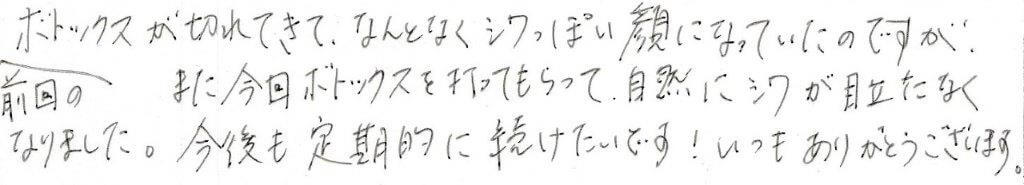 前回のボトックスが切れてきて、なんとなくシワっぽい顔になっていたのですが、
また今回ボトックスを打ってもらって、自然にシワが目立たなく
なりました。今後も定期的に続けたいです！いつもありがとうございます。